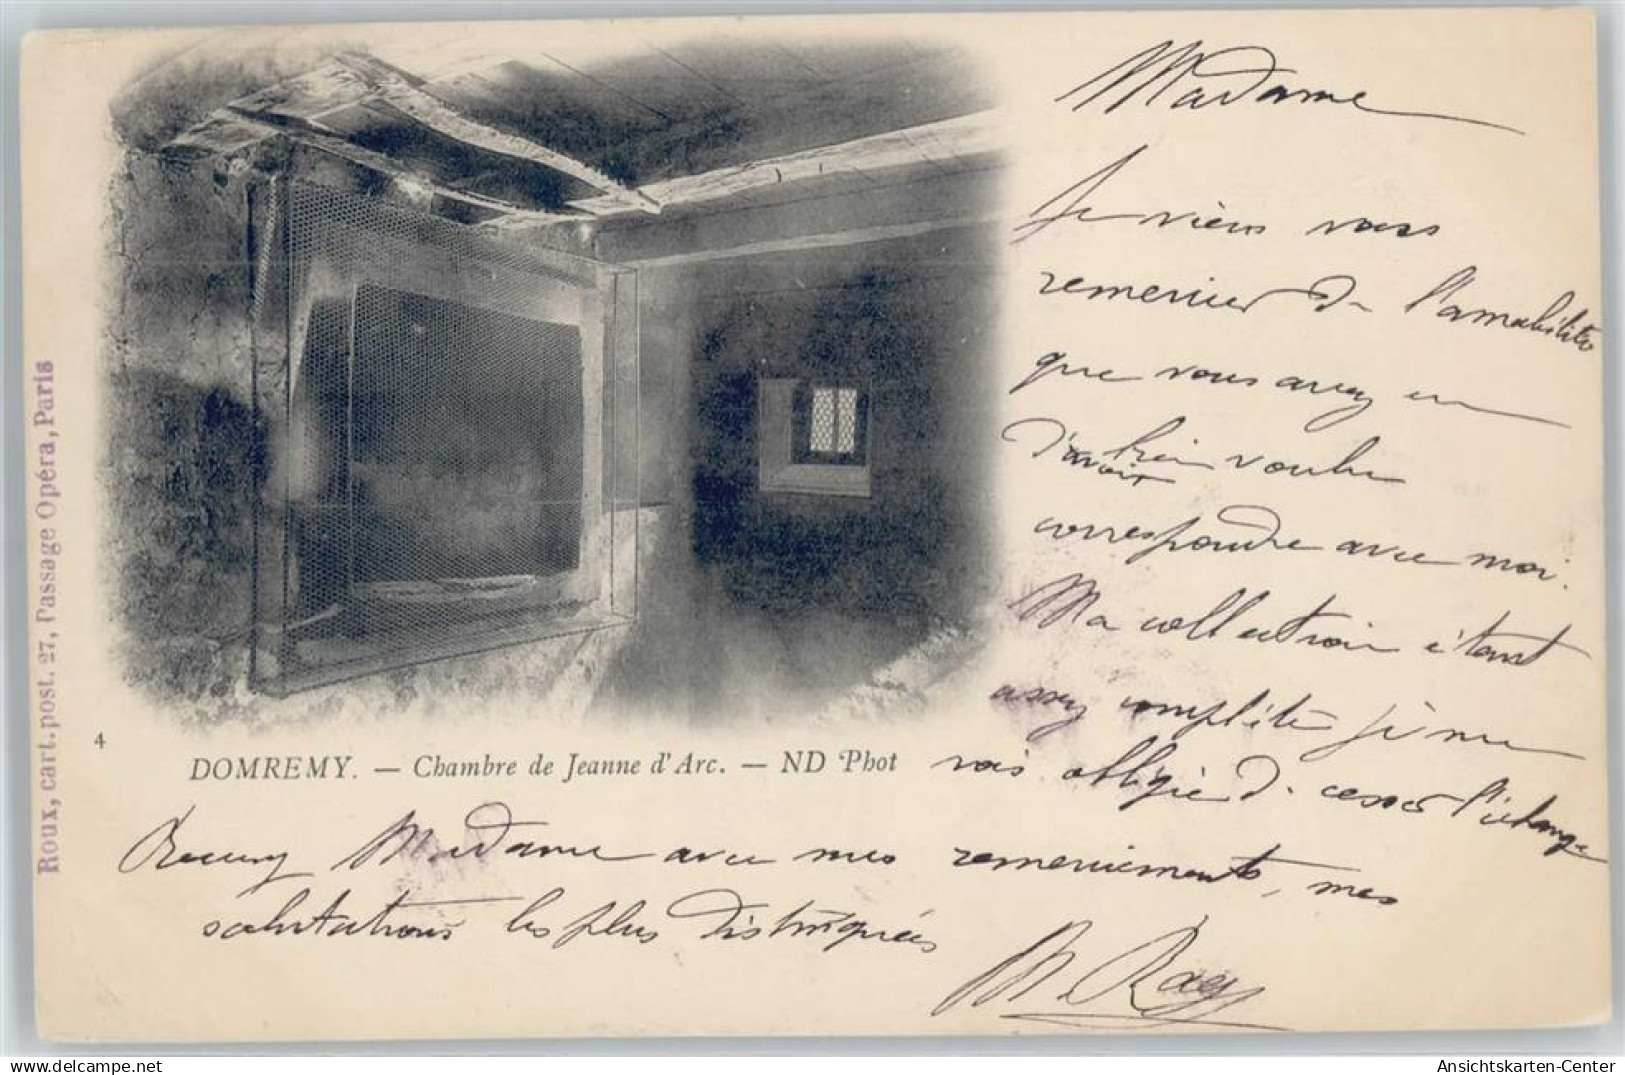 Madame
Je viens vous
remercier de l'amabilité
que vous avez eu
d'avoir bien voulu
correspondre avec moi.
Ma collection étant
assez complète je me
vois obligée de cesser l'échange
Recevez Madame avec mes remerciements, mes
salutations les plus distinguées
M. Ray
4
DOMREMY. — Chambre de Jeanne d'Arc. — ND Phot
Roux, cart.-post. 27, Passage Opéra, Paris
AnsichtsKarten-Center